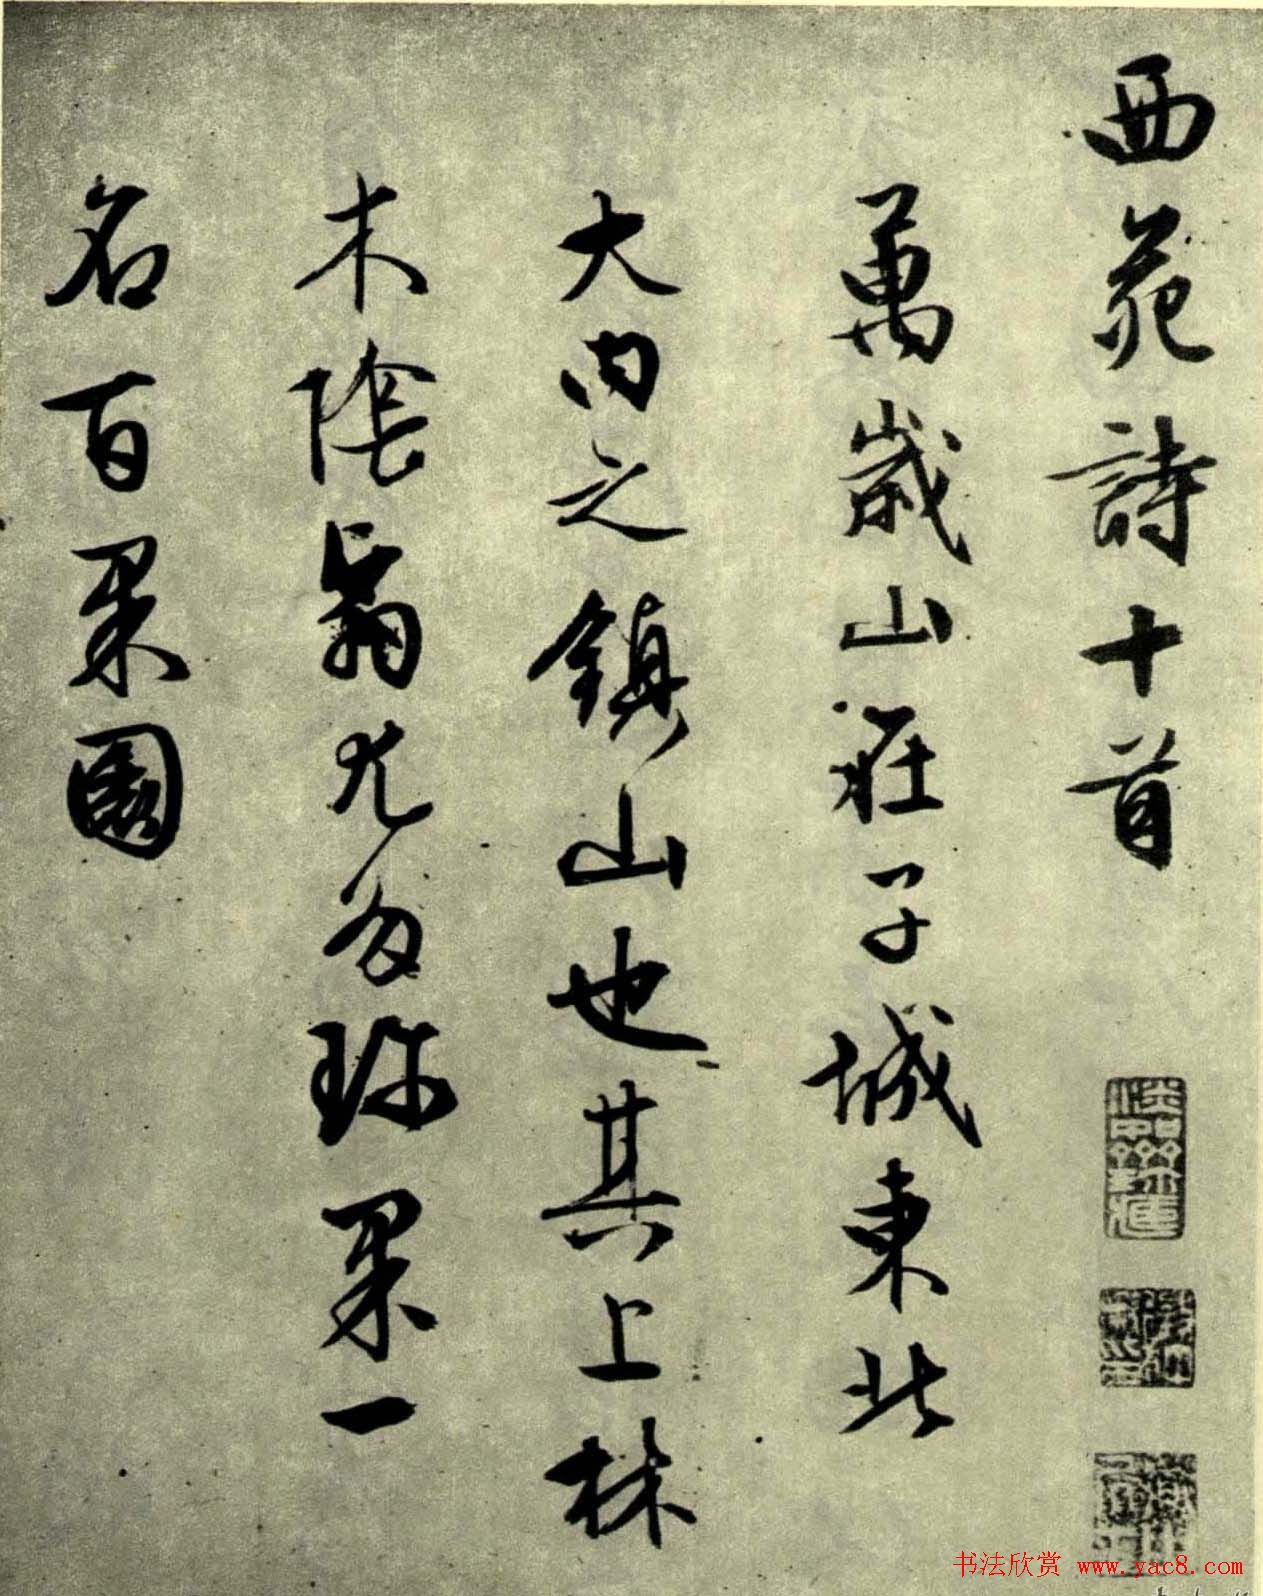 西苑詩十首
萬歲山在子城東北
大內之鎮山也其上林
木陰翳尤多珍果一
名百果園
书法欣赏 www.yac8.com